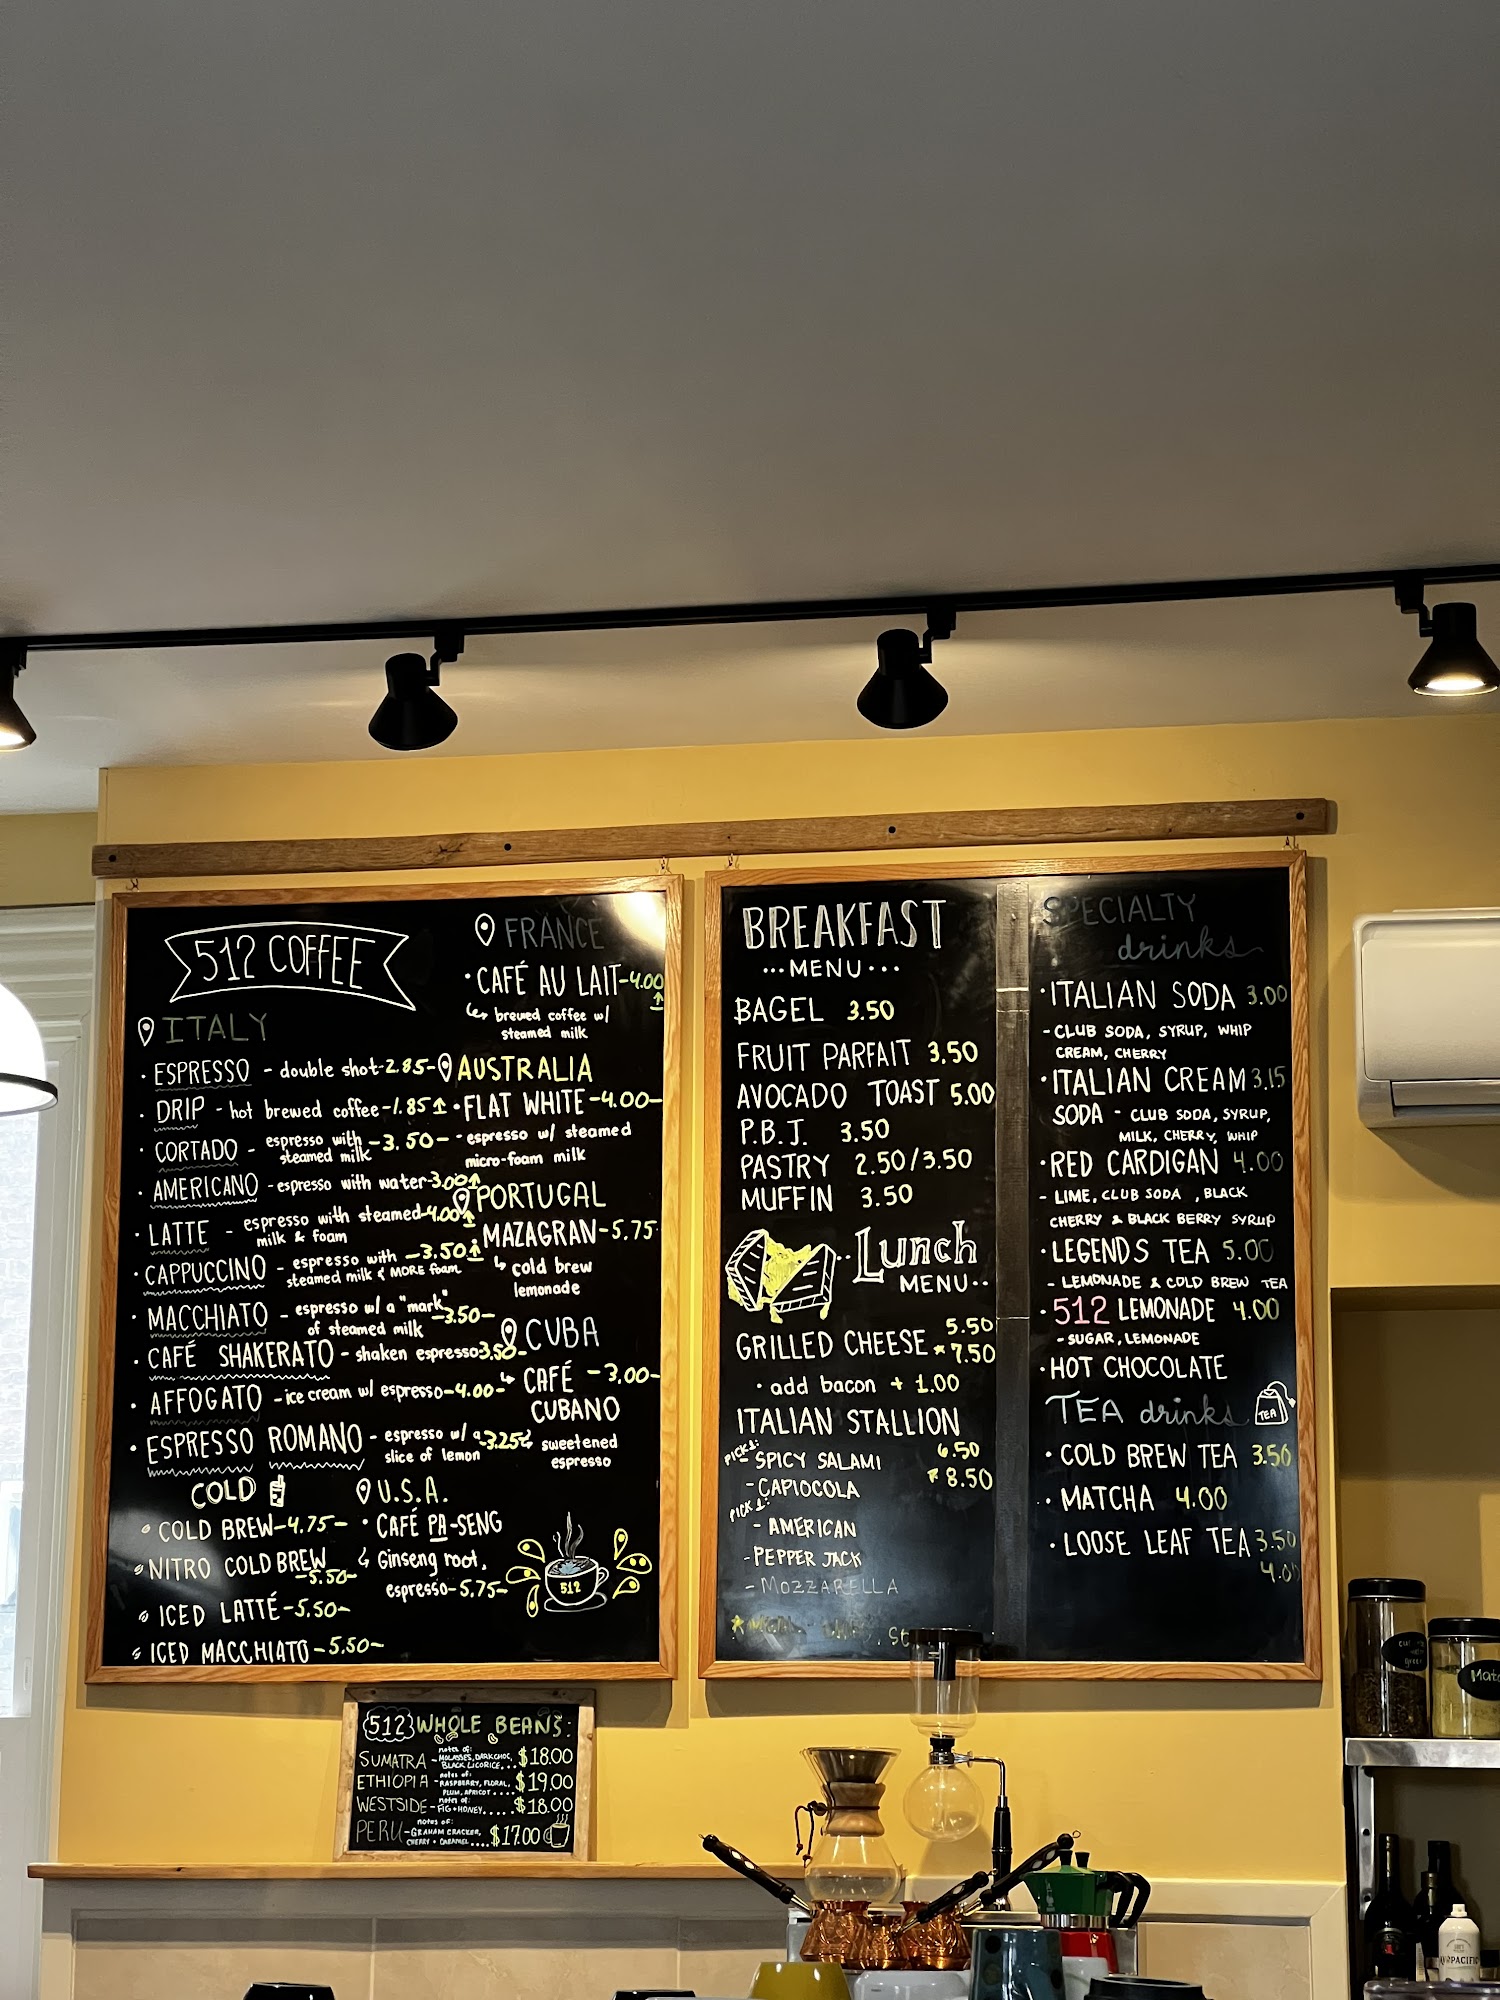 512 COFFEE
ITALY
ESPRESSO - double shot-2.85-
DRIP - hot brewed coffee-1.85↑
CORTADO - espresso with -3.50-
steamed milk
AMERICANO - espresso with water-3.00↑
LATTE - espresso with steamed-4.00↑
milk & foam
CAPPUCCINO - espresso with -3.50↑
steamed milk & MORE foam
MACCHIATO - espresso w/ a "mark" -3.50-
of steamed milk
CAFÉ SHAKERATO - shaken espresso 3.50-
AFFOGATO - ice cream w/ espresso-4.00-
ESPRESSO ROMANO - espresso w/ a -3.25
slice of lemon
COLD
COLD BREW-4.75-
NITRO COLD BREW
-5.50-
ICED LATTÉ-5.50-
ICED MACCHIATO-5.50-
FRANCE
CAFÉ AU LAIT-4.00
↑
brewed coffee w/
steamed milk
AUSTRALIA
FLAT WHITE-4.00-
- espresso w/ steamed
micro-foam milk
PORTUGAL
MAZAGRAN-5.75
cold brew
lemonade
CUBA
CAFÉ -3.00-
CUBANO
sweetened
espresso
U.S.A.
CAFÉ PA-SENG
Ginseng root,
espresso-5.75-
512
BREAKFAST
...MENU...
BAGEL 3.50
FRUIT PARFAIT 3.50
AVOCADO TOAST 5.00
P.B.J. 3.50
PASTRY 2.50/3.50
MUFFIN 3.50
Lunch
MENU
GRILLED CHEESE 5.50
* 7.50
add bacon + 1.00
ITALIAN STALLION
PICK 1: 6.50
- SPICY SALAMI * 8.50
- CAPIOCOLA
PICK 1:
- AMERICAN
- PEPPER JACK
- MOZZARELLA
SPECIALTY
drinks
ITALIAN SODA 3.00
- CLUB SODA, SYRUP, WHIP
CREAM, CHERRY
ITALIAN CREAM 3.15
SODA - CLUB SODA, SYRUP,
MILK, CHERRY, WHIP
RED CARDIGAN 4.00
- LIME, CLUB SODA , BLACK
CHERRY & BLACK BERRY SYRUP
LEGENDS TEA 5.00
- LEMONADE & COLD BREW TEA
512 LEMONADE 4.00
- SUGAR, LEMONADE
HOT CHOCOLATE
TEA drinks
TEA
COLD BREW TEA 3.50
MATCHA 4.00
LOOSE LEAF TEA 3.50
4.00
512 WHOLE BEANS:
SUMATRA - notes of: MOLASSES, DARK CHOC, BLACK LICORICE... $18.00
ETHIOPIA - notes of: RASPBERRY, FLORAL, PLUM, APRICOT.... $19.00
WESTSIDE - notes of: FIG + HONEY..... $18.00
PERU - notes of: GRAHAM CRACKER, CHERRY + CARAMEL.... $17.00